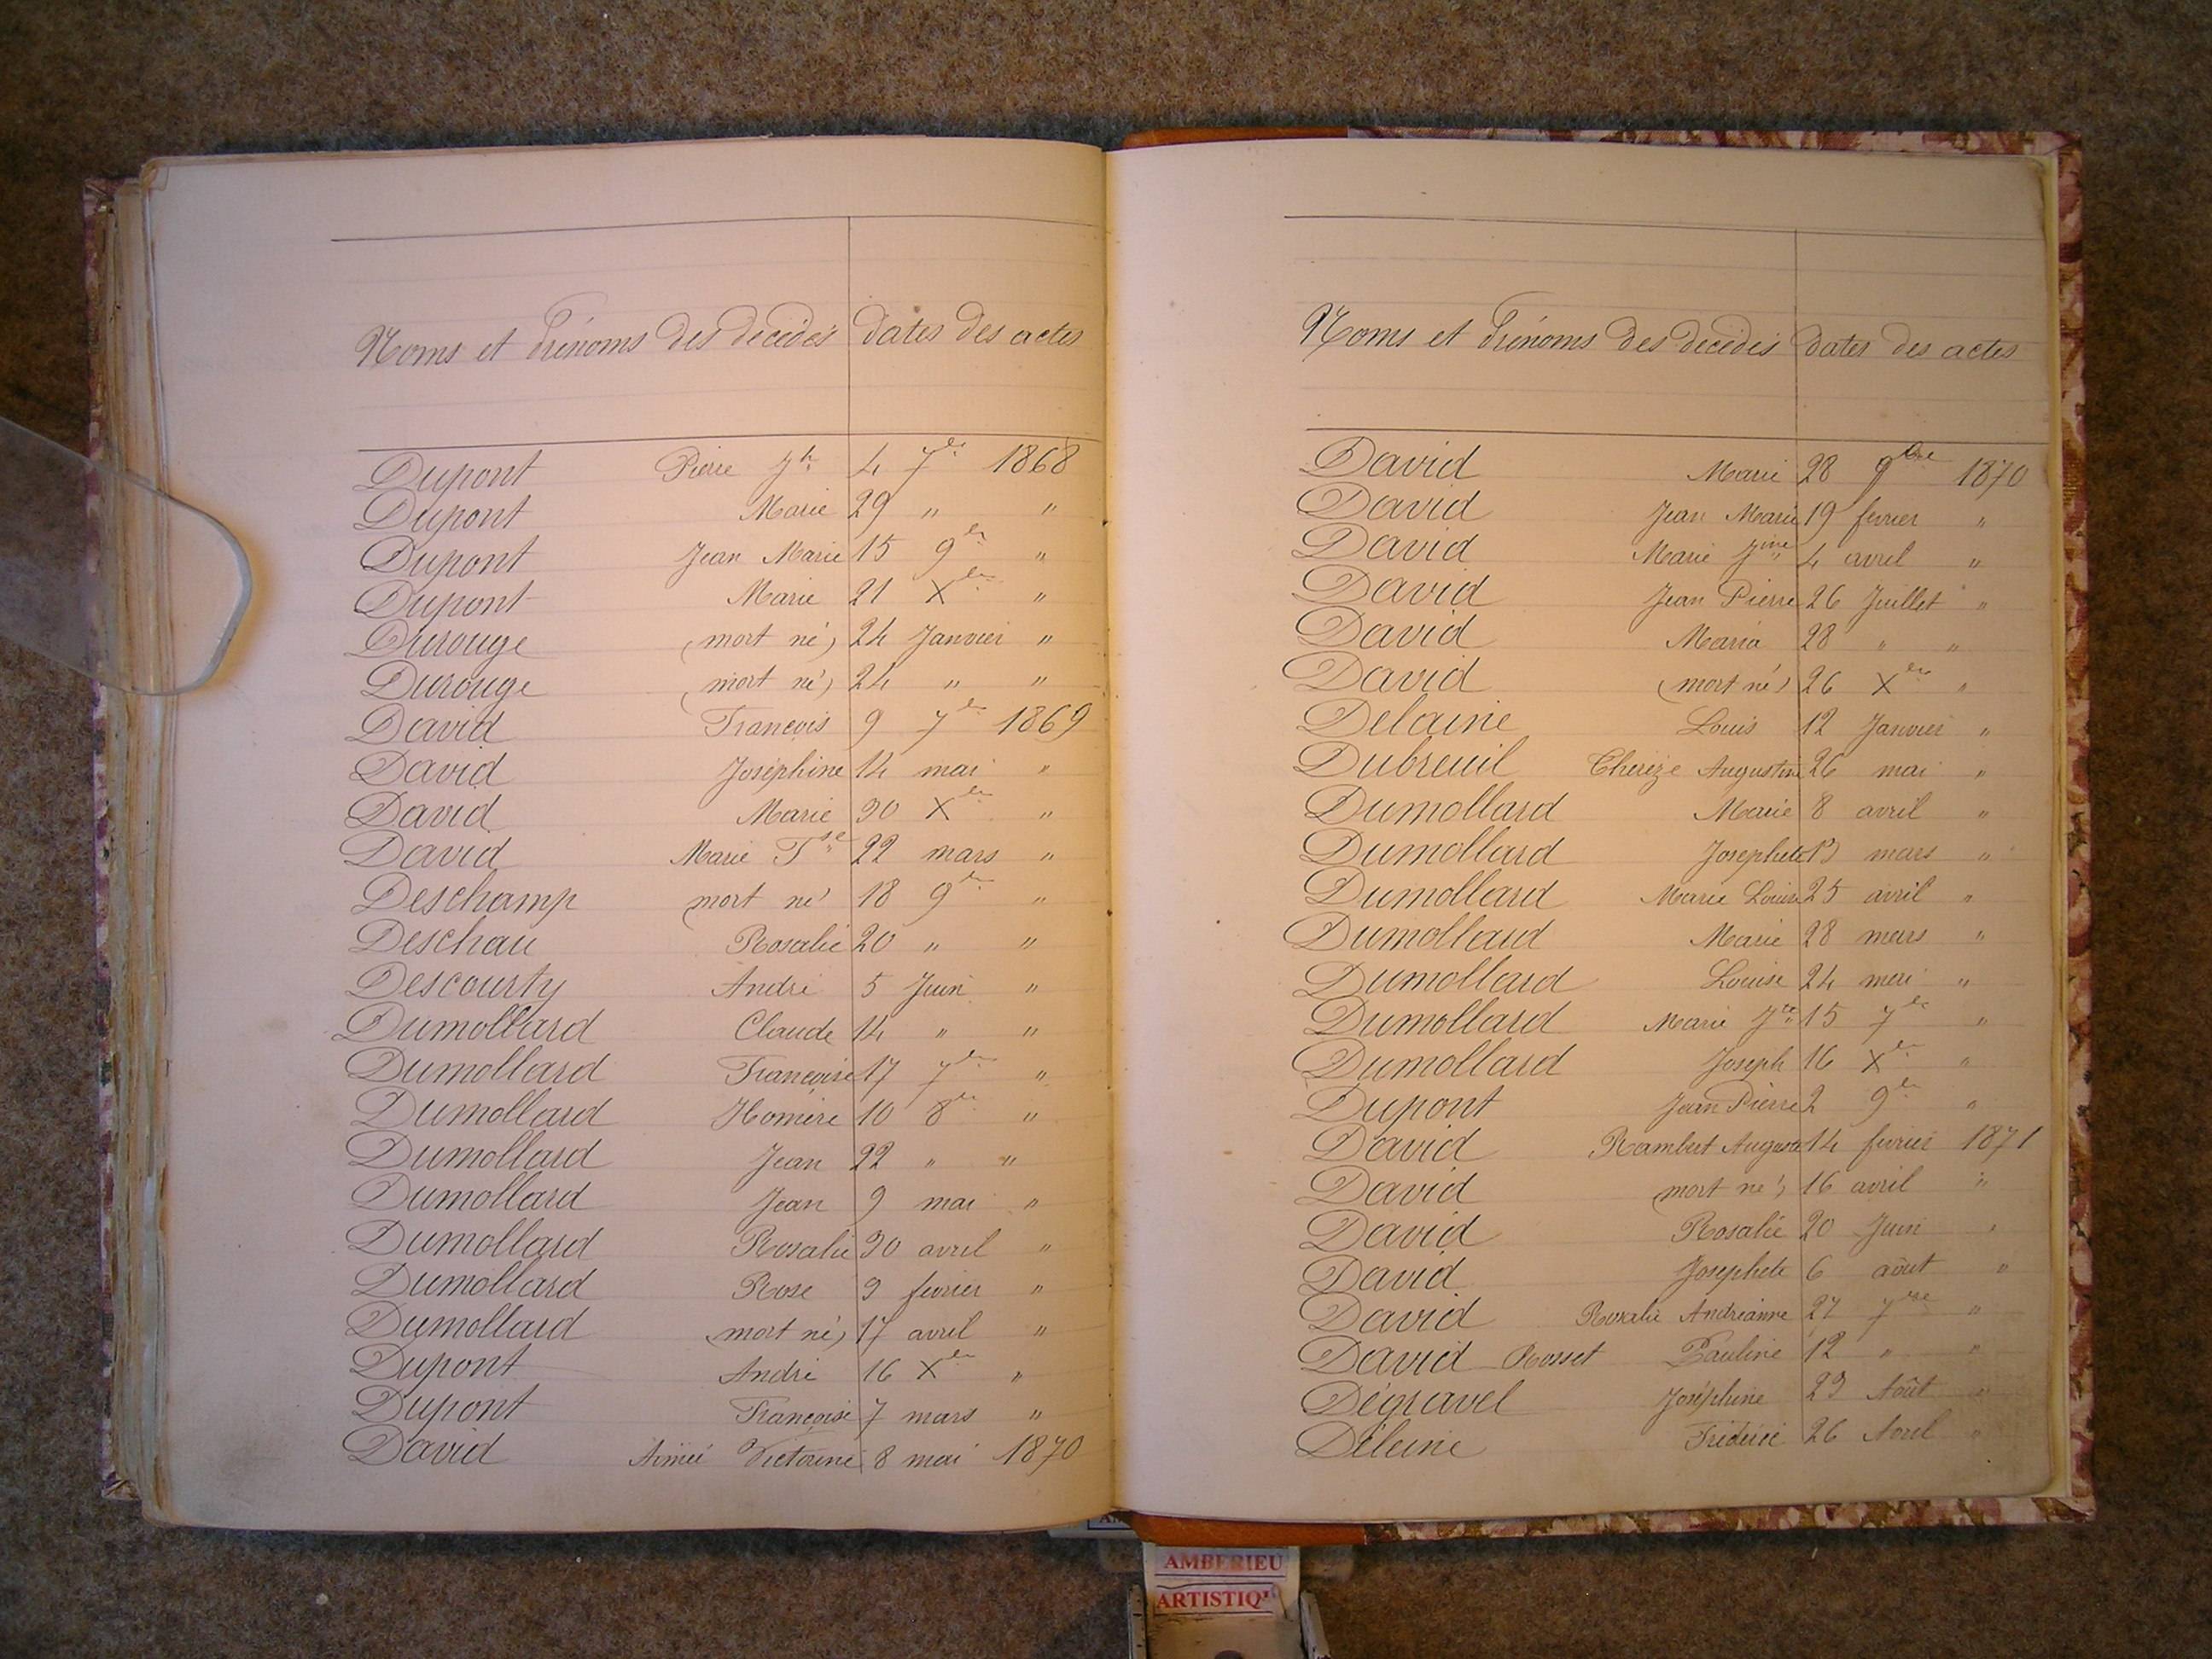 Noms et Prénoms des décédés dates des actes
Dupont Pierre Jh 4 7bre 1868
Dupont Marie 29 " "
Dupont Jean Marie 15 9bre "
Dupont Marie 21 Xbre "
Durouge (mort né) 24 Janvier "
Durouge (mort né) 24 " "
David François 9 7bre 1869
David Joséphine 14 mai "
David Marie 30 Xbre "
David Marie Fse 22 mars "
Deschamp mort né 18 9bre "
Deschau Rosalie 20 " "
Descourty André 5 Juin "
Dumollard Claude 14 " "
Dumollard Françoise 17 7bre "
Dumollard Homère 10 8bre "
Dumollard Jean 22 " "
Dumollard Jean 9 mai "
Dumollard Rosalie 30 avril "
Dumollard Rose 9 fevrier "
Dumollard (mort né) 17 avril "
Dupont André 16 Xbre "
Dupont Françoise 7 mars "
David Aimée Victorine 8 mai 1870
Noms et Prénoms des décédés dates des actes
David Marie 28 9bre 1870
David Jean Marie 19 fevrier "
David Marie Jine 4 avril "
David Jean Pierre 26 Juillet "
David Maria 28 " "
David (mort né) 26 Xbre "
Delaine Louis 12 Janvier "
Dubreuil Thérèze Augustine 26 mai "
Dumollard Marie 8 avril "
Dumollard Josephete 13 mars "
Dumollard Marie Louise 25 avril "
Dumollard Marie 28 mars "
Dumollard Louise 24 mai "
Dumollard Marie Jte 15 7bre "
Dumollard Joseph 16 Xbre "
Dupont Jean Pierre 2 9bre "
David Rambert Auguste 14 fevrier 1871
David (mort né) 16 avril "
David Rosalie 20 Juin "
David Josephete 6 août "
David Rosalie Andréanne 27 7bre "
David Rosset Pauline 12 " "
Dégravel Joséphine 23 Août "
Déleine Fridéric 26 "
AMBERIEU